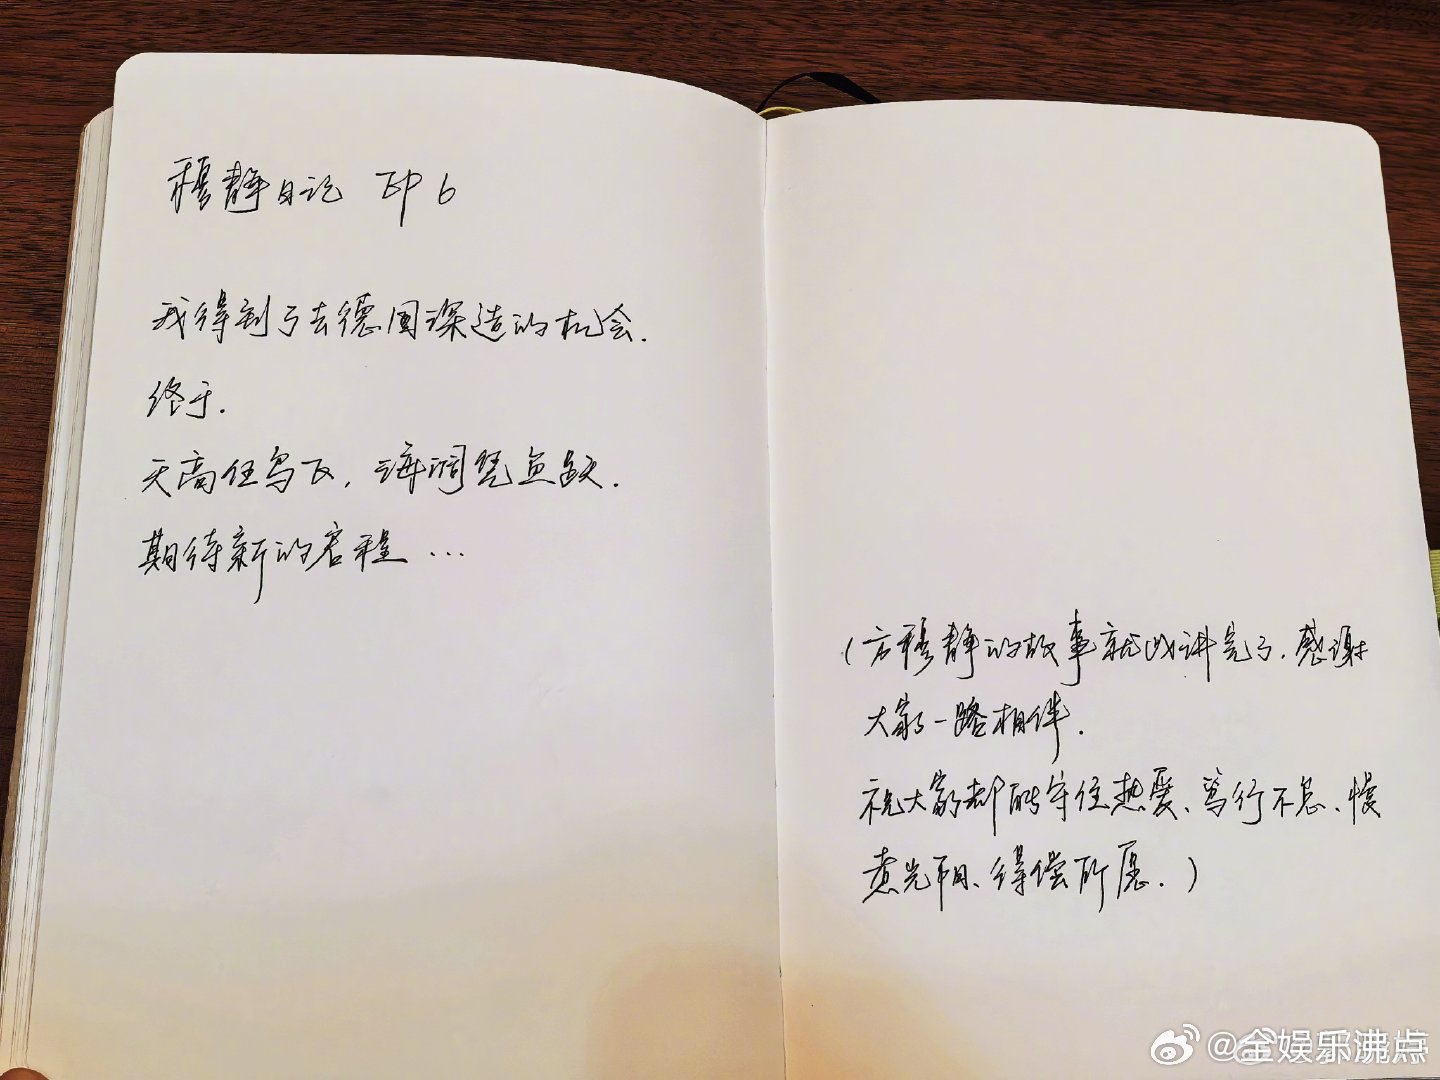 穆静日记 EP 6
我得到了去德国深造的机会.
终于.
天高任鸟飞, 海阔凭鱼跃.
期待新的启程 ...
(方穆静的故事就此讲完了. 感谢
大家一路相伴.
祝大家都能守住热爱、笃行不怠、慢
煮光阴、得偿所愿. )
@全娱乐沸点